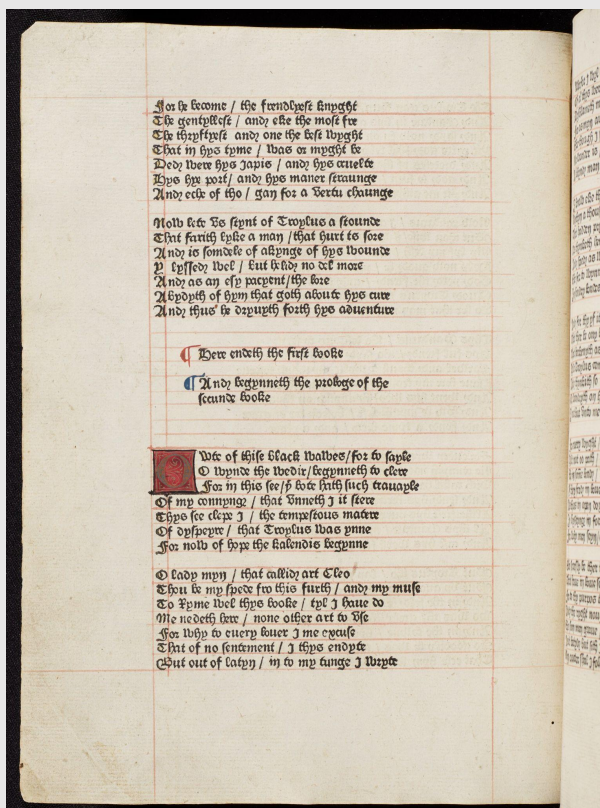 For he become / the frendlyest knyght
The gentyllest / and eke the most fre
The thryftyest and one the best wyght
That in hys tyme / was or myght be
Dede were hys Japis / and hys cruelte
Hys hye port / and hys maner straunge
And eche of tho / gan for a vertu chaunge

Now lete vs stynt of Troylus a stounde
That farith lyke a man / that hurt is sore
And is somdele of akynge of hys wounde
Y lyssed wel / but helid no del more
And as an esy pacyent / the lore
Abydyth of hym that goth aboute hys cure
And thus he dryuyth forth hys aduenture

¶ Here endeth the first booke

¶ And begynneth the prologe of the
secunde booke

Owte of thise black wawes / for to sayle
O wynde the wedir / begynneth to clere
For in this see / þe bote hath such trauayle
Of my connynge / that vnneth I it stere
Thys see clepe I / the tempestous matere
Of dyspeyre / that Troylus was ynne
For now of hope the kalendis begynne

O lady myn / that callid art Cleo
Thou be my spede fro this furth / and my muse
To Ryme wel thys booke / tyl I haue do
Me nedeth here / none other art to vse
For why to euery louer I me excuse
That of no sentement / I thys endyte
But out of latyn / in to my tunge I wryte